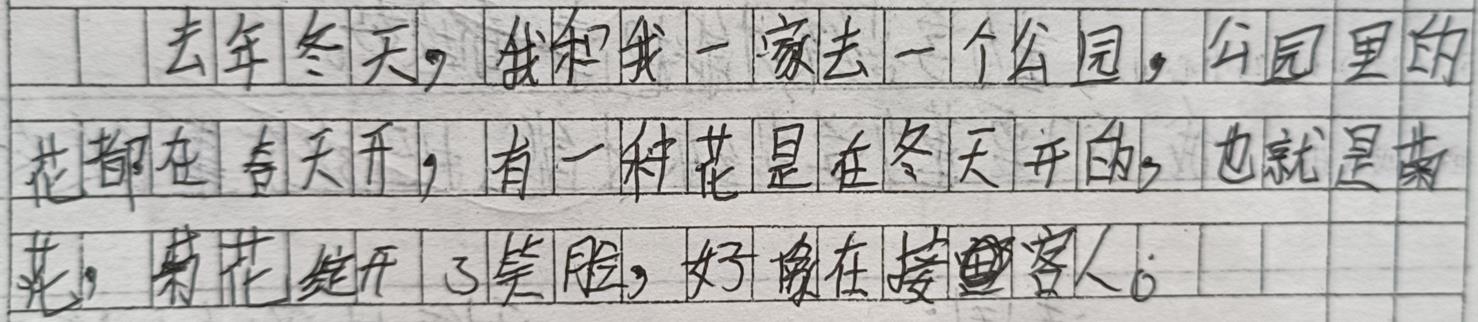 去年冬天，我和我一家去一个公园，公园里的
花都在春天开，有一种花是在冬天开的，也就是菊
花，菊花绽开了笑脸，好像在接客人。